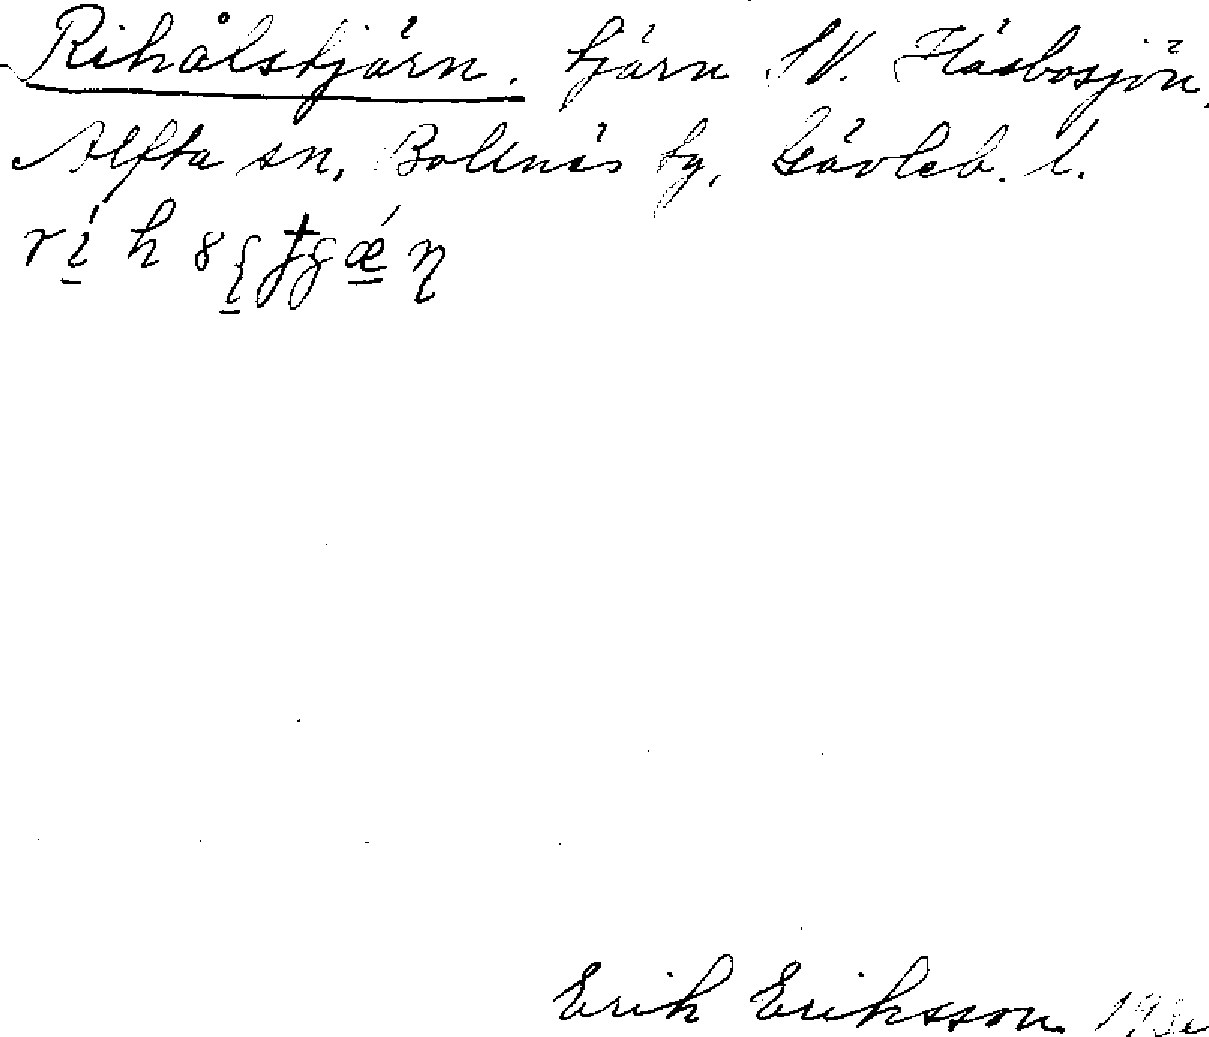 Rihålstjärn. tjärn SV. Håsbosjön.
Alfta sn, Bollnäs tg, Gävleb. l.
Erik Eriksson